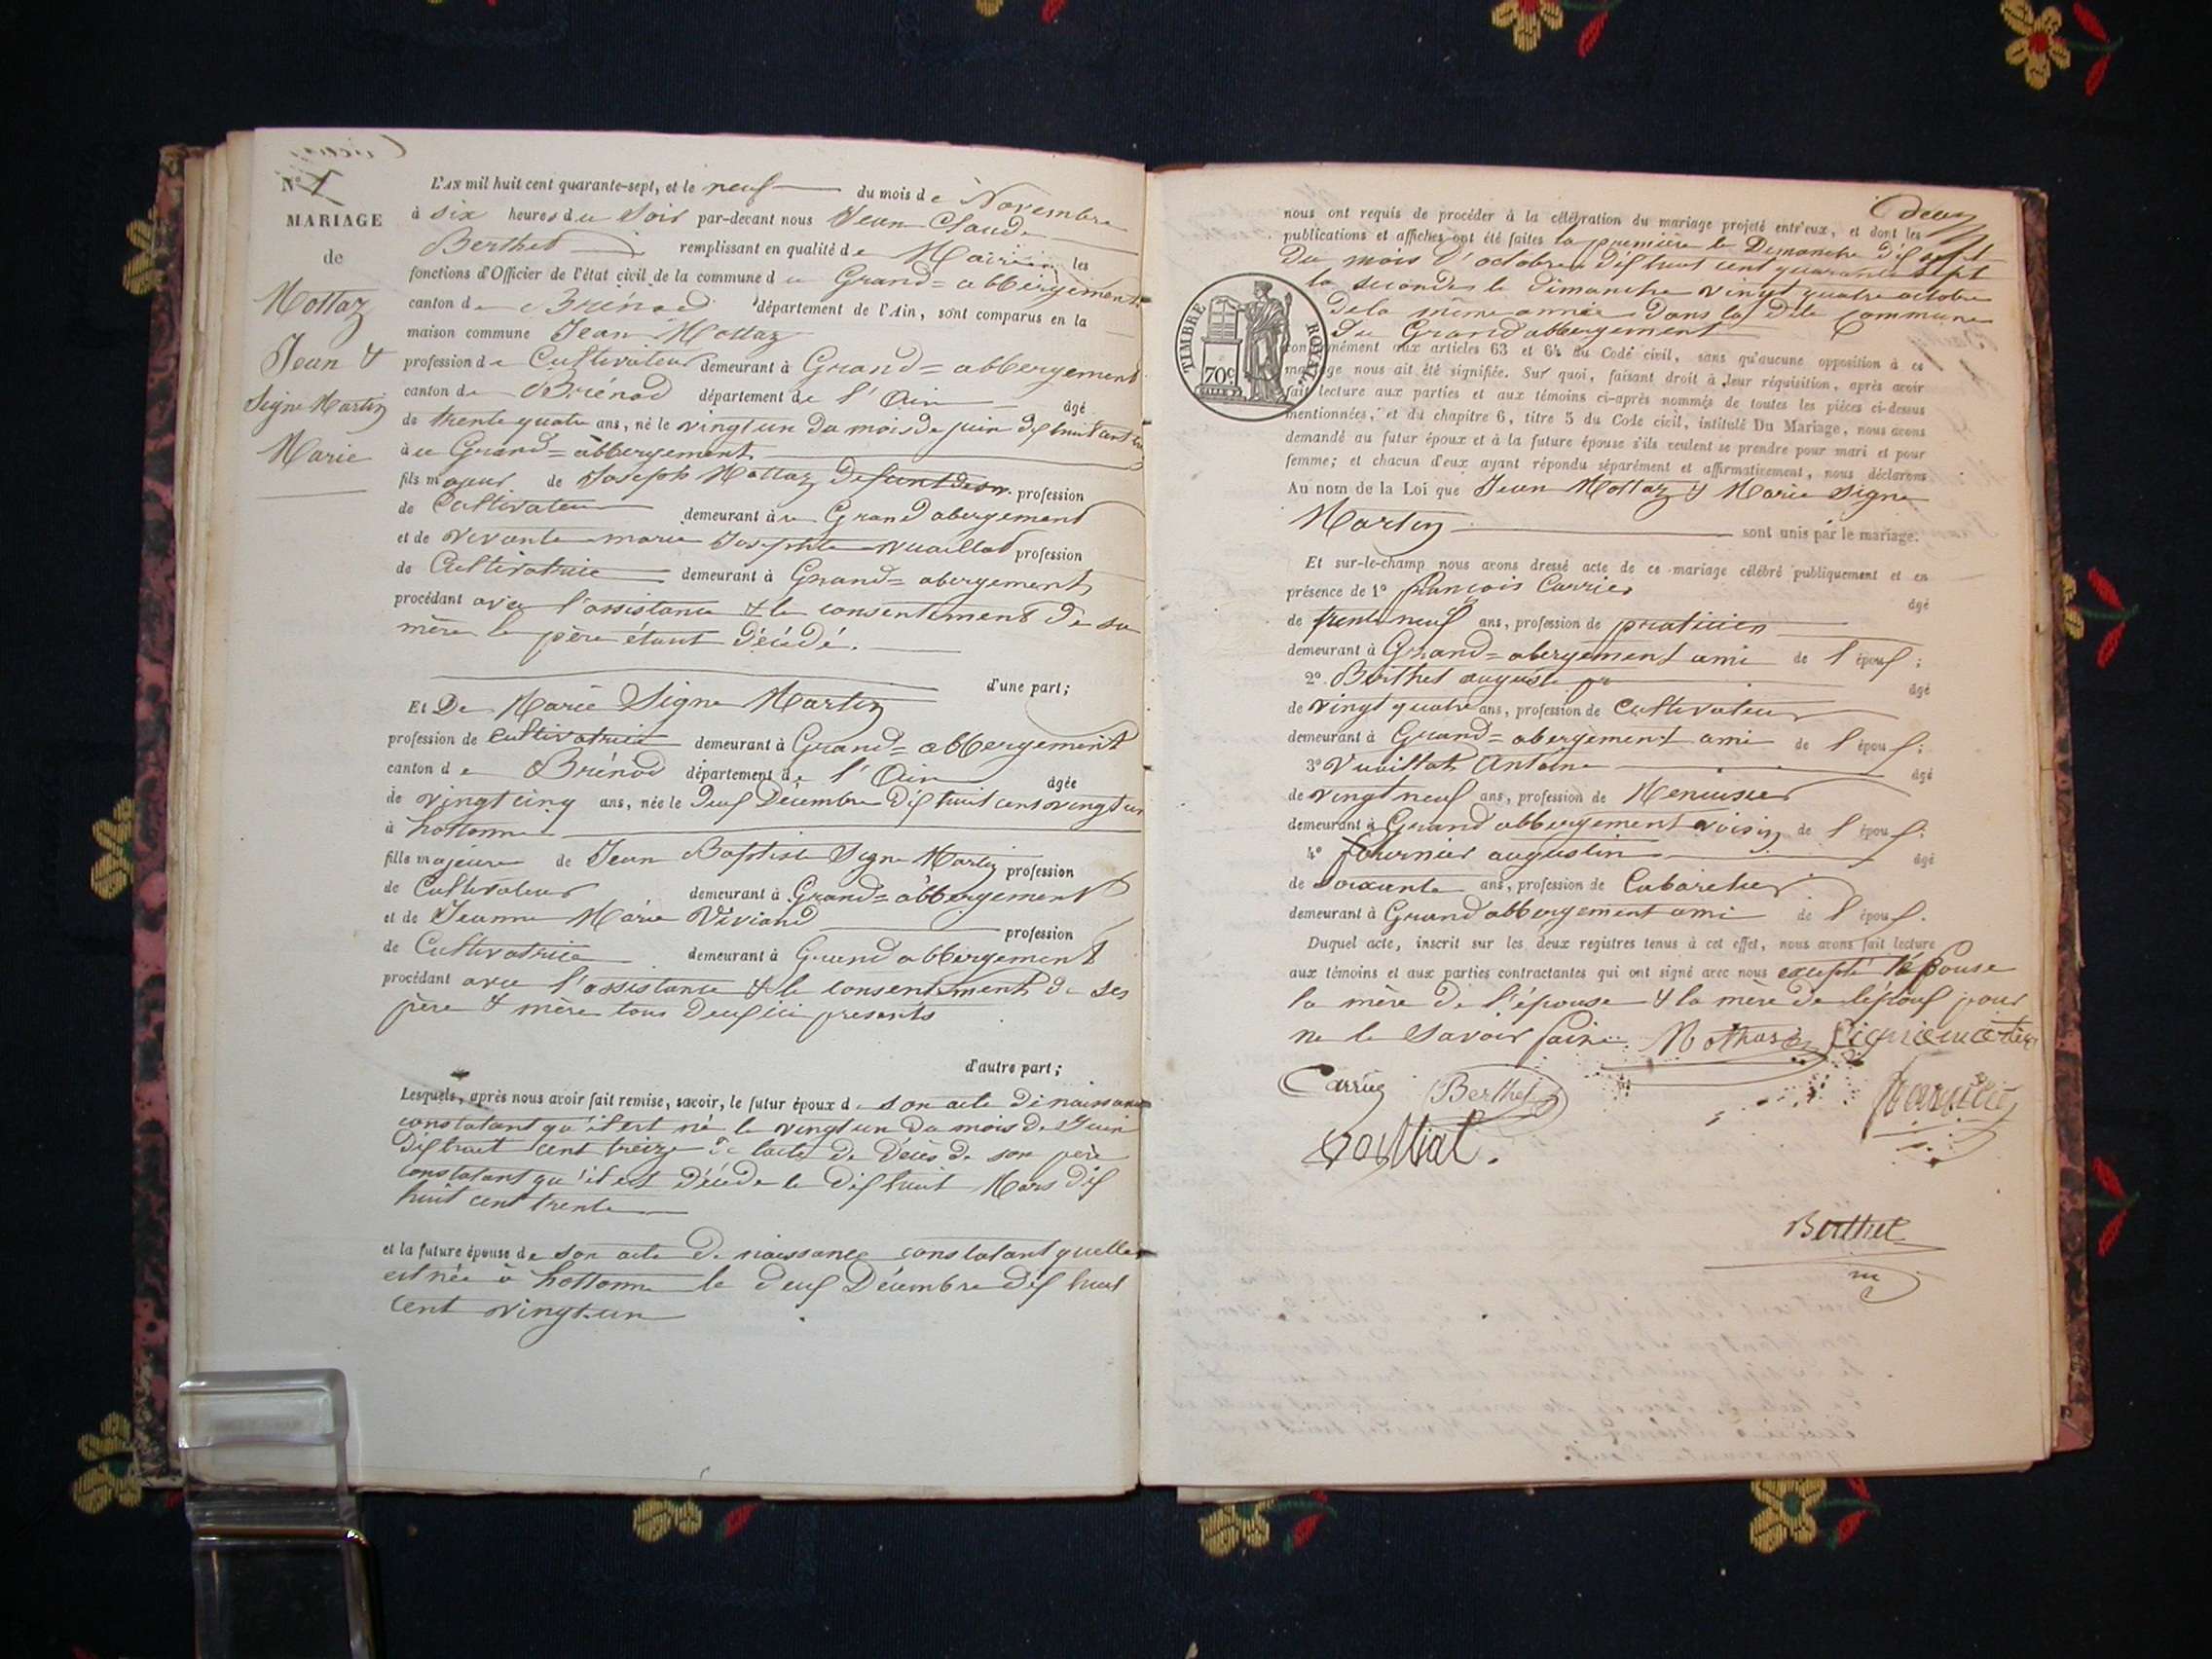 N° 1
MARIAGE
de
Mottaz
Jean &
Signe Martin
Marie
L'AN mil huit cent quarante-sept, et le neuf du mois de Novembre
à six heures du Soir par-devant nous Jean Claude
Berthet remplissant en qualité de Maire les
fonctions d'Officier de l'état civil de la commune du Grand=abbergement
canton de Brénod département de l'Ain, sont comparus en la
maison commune Jean Mottaz
profession de Cultivateur demeurant à Grand=abbergement
canton de Brénod département de l'Ain âgé
de trente quatre ans, né le vingt un du mois de juin dix huit cent
à u Grand=abbergement
fils majeur de Joseph Mottaz Defunt profession
de Cultivateur demeurant à u Grand abergement
et de vivante marie Josephte vuaillat profession
de Cultivatrice demeurant à Grand=abergement
procédant avec l'assistance & le consentement De sa
mère le père étant Décédé.
d'une part;
Et De Marie Signe Martin
profession de Cultivatrice demeurant à Grand=abbergement
canton de Brénod département de l'Ain âgée
de vingt cinq ans, née le Deux Décembre dix huit cent vingt un
à hottonne
fille majeure de Jean Baptiste Signe Martin profession
de Cultivateur demeurant à Grand=abbergement
et de Jeanne Marie Viviand profession
de Cultivatrice demeurant à Grand abbergement
procédant avec l'assistance & le consentement de ses
père & mère tous Deux ici présents
d'autre part;
Lesquels, après nous avoir fait remise, savoir, le futur époux de son acte De naissance
constatant qu'il est né le vingt un Du mois de Juin
Dix huit cent treize & l'acte de Décès de son père
constatant qu'il est Décédé le Dix huit Mars Dix
huit cent trente
et la future épouse de son acte De naissance constatant quelle
est née à hottonne le Deux Décembre Dix huit
cent vingt un
Deux
nous ont requis de procéder à la célébration du mariage projeté entr'eux, et dont les
publications et affiches ont été faites la première le Dimanche Dix sept
Du mois D'octobre Dix huit cent quarante sept
la seconde le Dimanche vingt quatre octobre
De la même année Dans la Dite Commune
Du Grand abbergement
TIMBRE ROYAL.
70c
conformément aux articles 63 et 64 du Code civil, sans qu'aucune opposition à ce
mariage nous ait été signifiée. Sur quoi, faisant droit à leur réquisition, après avoir
fait lecture aux parties et aux témoins ci-après nommés de toutes les pièces ci-dessus
mentionnées, et du chapitre 6, titre 5 du Code civil, intitulé Du Mariage, nous avons
demandé au futur époux et à la future épouse s'ils veulent se prendre pour mari et pour
femme; et chacun d'eux ayant répondu séparément et affirmativement, nous déclarons
Au nom de la Loi que Jean Mottaz & Marie Signe
Martin sont unis par le mariage.
Et sur-le-champ nous avons dressé acte de ce mariage célébré publiquement et en
présence de 1° françois Carrier âgé
de trente neuf ans, profession de praticien
demeurant à Grand=abergement ami de l'époux;
2° Berthet auguste âgé
de vingt quatre ans, profession de Cultivateur
demeurant à Grand=abergement ami de l'époux;
3° Vuaillat Antoine âgé
de vingt neuf ans, profession de Menuisier
demeurant à Grand abbergement voisin de l'époux;
4° fournier augustin âgé
de soixante ans, profession de Cabaretier
demeurant à Grand abbergement ami de l'époux.
Duquel acte, inscrit sur les deux registres tenus à cet effet, nous avons fait lecture
aux témoins et aux parties contractantes qui ont signé avec nous excepté l'épouse
la mère De l'épouse & la mère de l'époux pour
ne le savoir faire. Mothas Signemartin
Carrier Berthet
Berthet